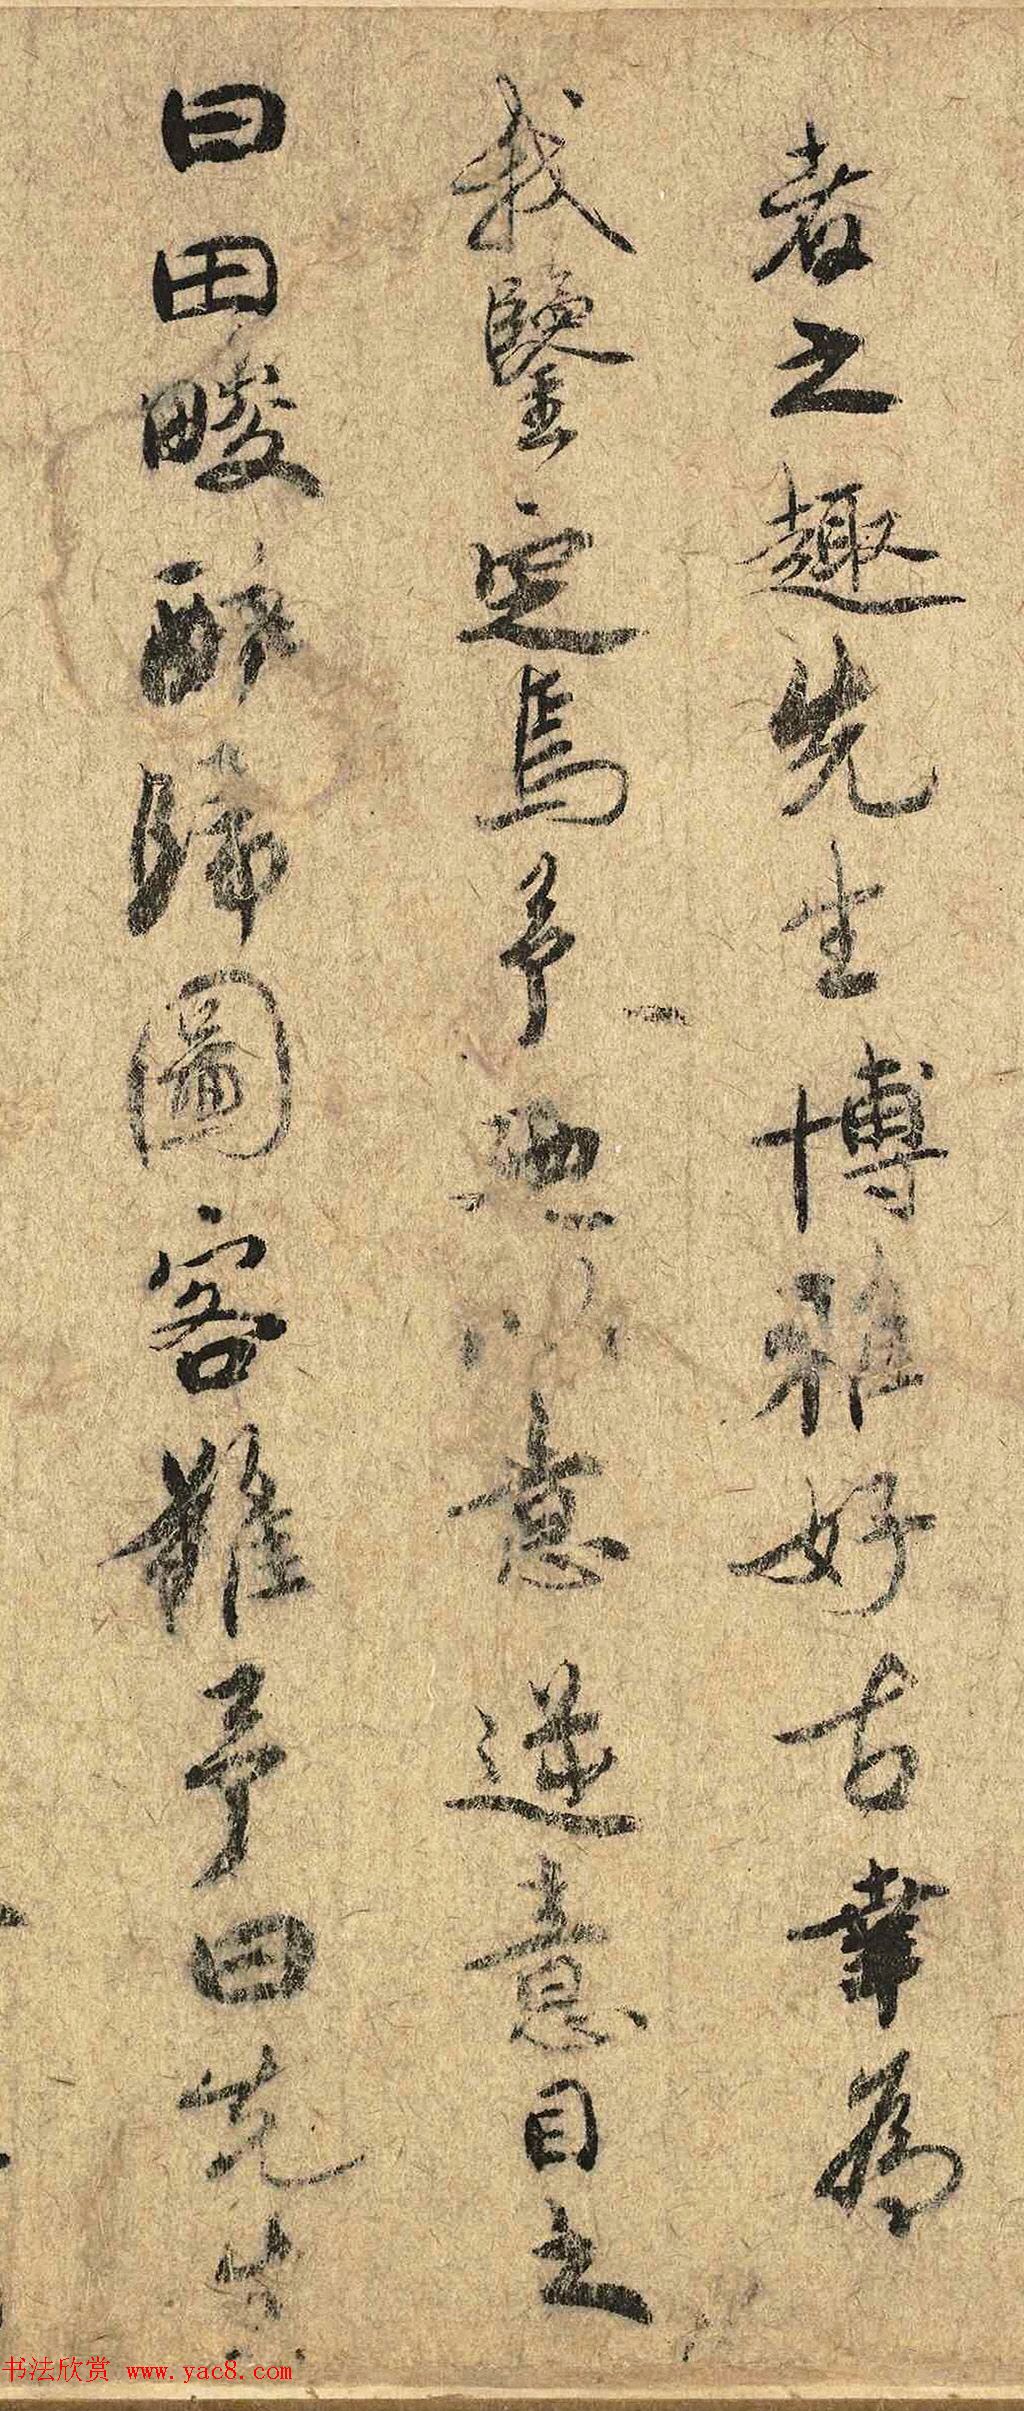 者之趣先生博雅好古幸為
我鑒定焉予遂以意逆意目之
曰田畯醉歸圖客難予曰先生
书法欣赏 www.yac8.com